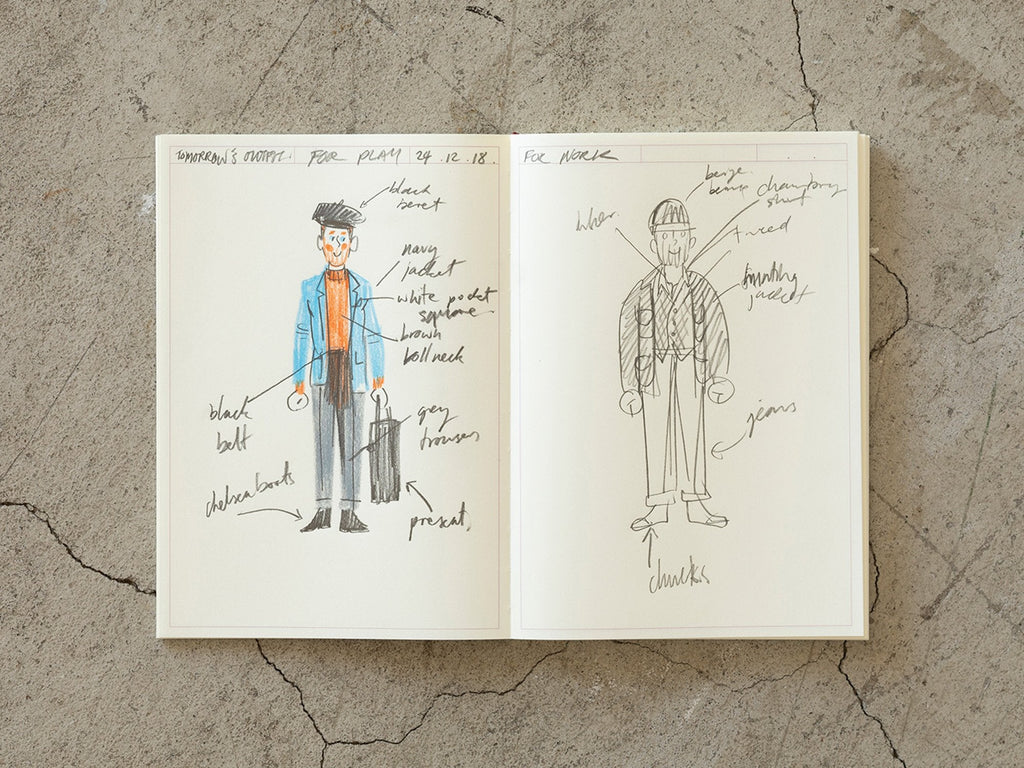 TOMORROW'S OUTFIT. FOR PLAY 24 . 12 . 18 .
black
beret
navy
jacket
white pocket
square
brown
rollneck
black
belt
grey
trousers
chelsea boots
present.
FOR WORK
beige
chambray
shirt
hunting
jacket
jeans
chucks